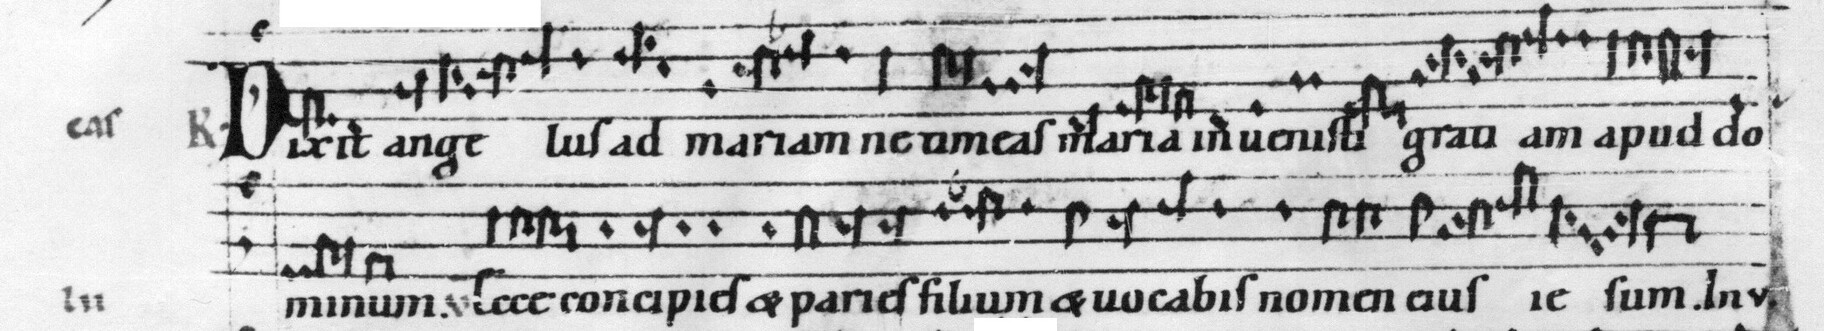 eas R. Dixit angelus ad mariam ne timeas maria invenisti gratiam apud do
lu minum. v. Ecce concipies & paries filium & uocabis nomen eius iesum. In v.